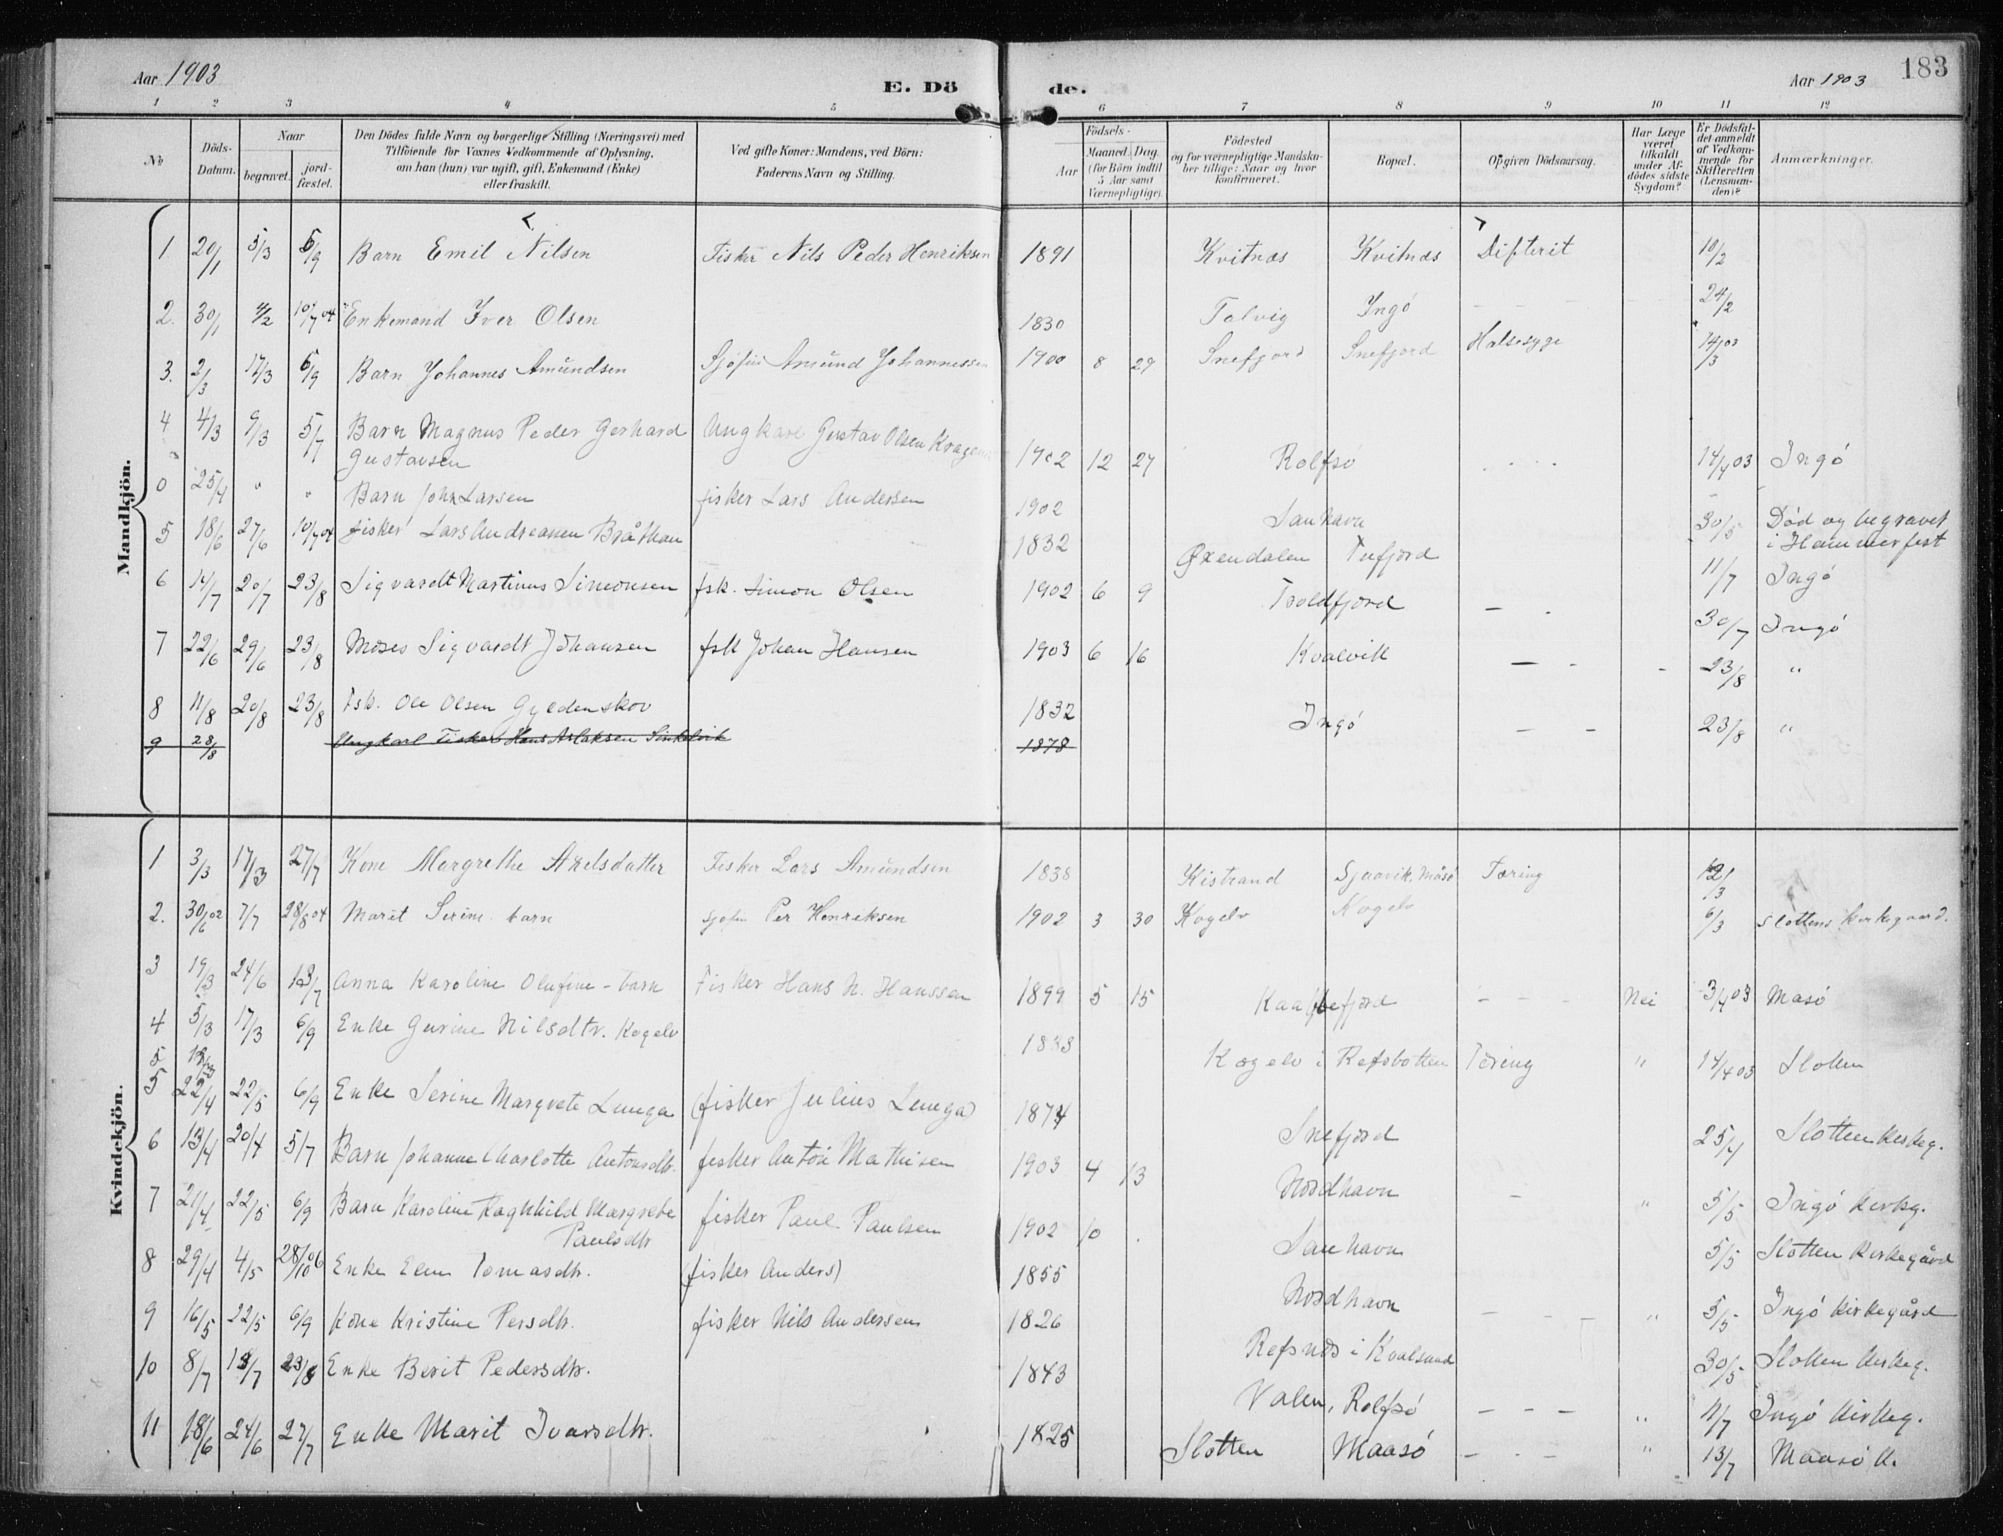 Aar 1903
E. Dö
de.
Aar 1903
183
1 2 3 4 5 6 7 8 9 10 11 12
No
Döds-Datum.
Naar
begravet.
jord-fæstet.
Den Dödes fulde Navn og borgerlige Stilling (Næringsvei) med
Tilföiende for Voxnes Vedkommende af Oplysning,
om han (hun) var ugift, gift, Enkemand (Enke)
eller fraskilt.
Ved gifte Koner: Mandens, ved Börn:
Faderens Navn og Stilling.
Födsels-
Aar
Maaned. Dag.
(for Börn indtil
5 Aar samt
Værnepligtige).
Födested
og for værnepligtige Mandska-
ber tillige: Naar og hvor
konfirmeret.
Bopæl.
Opgiven Dödsaarsag.
Har Læge
været
tilkaldt
under Af-
dödes sidste
Sygdom?
Er Dödsfal-
det anmeldt
af Vedkom-
mende for
Skifteretten
(Lensman-
den)?
Anmærkninger.
Mandkjön.
1 20/1 5/3 6/9 Barn Emil Nilsen Fisker Nils Peder Henriksen 1891 Kvitnæs Kvitnæs Difterit 10/2
2. 30/1 4/2 10/7 04 Enkemand Iver Olsen 1830 Talvig Ingö 24/2
3. 2/3 17/3 6/9 Barn Johannes Amundsen Sjöfin Amund Johannessen 1900 8 27 Snefjord Snefjord Halssyge 14/3 03
4 4/3 9/3 5/7 Barn Magnus Peder Gerhard Ungkarl Gustav Olsen
Gustavsen 1902 12 27 Rolfsö 14/4 03 Ingö
0 25/4 " " Barn John Larsen fisker Lars Andersen 1902 Sanhavn 30/5 Död og begravet
i Hammerfest
5 18/6 27/6 10/7 04 fisker Lars Andreasen Bråthan 1832 Öxendalen Tufjord 11/7 Ingö
6 14/7 20/7 23/8 Sigvardt Martinus Simonsen fsk. Simon Olsen 1902 6 9 Troldfjord 30/7 Ingö
7 22/6 29/6 23/8 Moses Sigvardt Johansen fsk Johan Hansen 1903 6 16 Kvalvik 23/8 "
8 11/8 20/8 23/8 Fsk. Ole Olsen Gyldenskov 1832 Ingö 23/8 "
9 28/8 Ungkarl Fisker Hans Aslaksen 1878
Kvindekjön.
1 3/3 17/3 27/7 Kone Margrethe Axelsdatter Fisker Lars Amundsen 1838 Kistrand Måsö Tæring /3
2. 30/6 02 7/7 28/8 04 Marit Serine barn sjöfin Per Henriksen 1902 3 30 Kogelv Kogelv 6/3 Slottens kirkegaard.
3 19/3 24/6 13/7 Anna Karoline Olufine - barn Fisker Hans N. Hanssen 1899 5 15 Nei 3/4 03 Masö
4 5/3 17/3 6/9 Enke Gurine Nilsdtr. Kogelv 1833 Kogelv i Refsbotten Tæring " 14/4 03 Slotten
5
5 22/4 22/5 6/9 Enke Serine Margrete Lunega (fisker Julius Lunega) 1874 Snefjord 25/4 Slotten kirkeg.
6 13/4 20/4 5/7 Barn Johanne Charlotte Antonsdtr. fisker Anton Mathisen 1903 4 13 Nordhavn " 5/5 Ingö kirkg.
7 21/4 22/5 6/9 Barn Karoline Raghhild Margrete
Paulsdtr fisker Paul Paulsen 1902 10 Sanhavn 5/5 Slotten kirkegård
8 29/4 4/5 28/10 06 Enke Elen Tomasdtr. (fisker Anders) 1855 Nordhavn " 5/5 Ingö kirkegård
9 16/5 22/5 6/9 Kone Kristine Persdtr. fisker Nils Andersen 1826 Refsnæs i Kvalsund 30/5 Slotten kirkeg.
10 8/7 13/7 23/8 Enke Berit Pedersdtr. 1843 Valen, Rolfsö " 11/7 Ingö kirkeg.
11 18/6 24/6 27/7 Enke Marit Ivarsdtr. 1825 Slotten Maasö " 13/7 Maasö k.